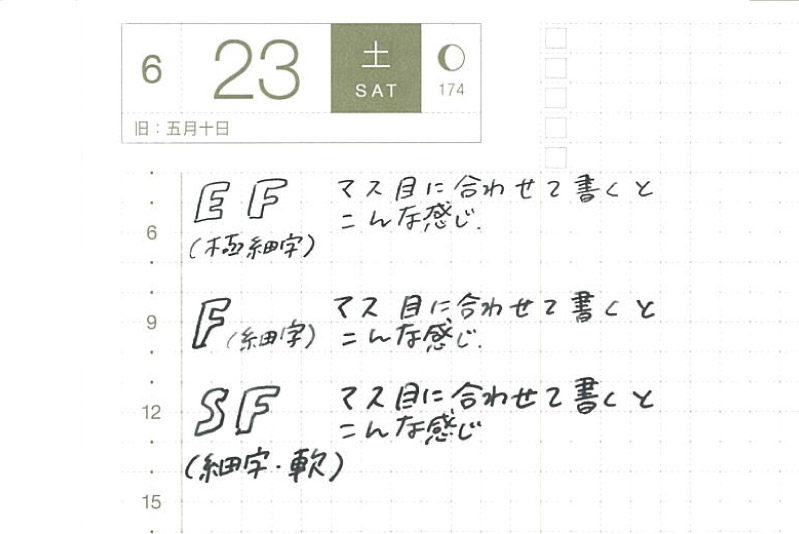 6 23 土 SAT 174
旧：五月十日
EF マス目に合わせて書くと
6 こんな感じ.
(極細字)
F マス目に合わせて書くと
9 (細字) こんな感じ.
SF マス目に合わせて書くと
12 こんな感じ
(細字・軟)
15